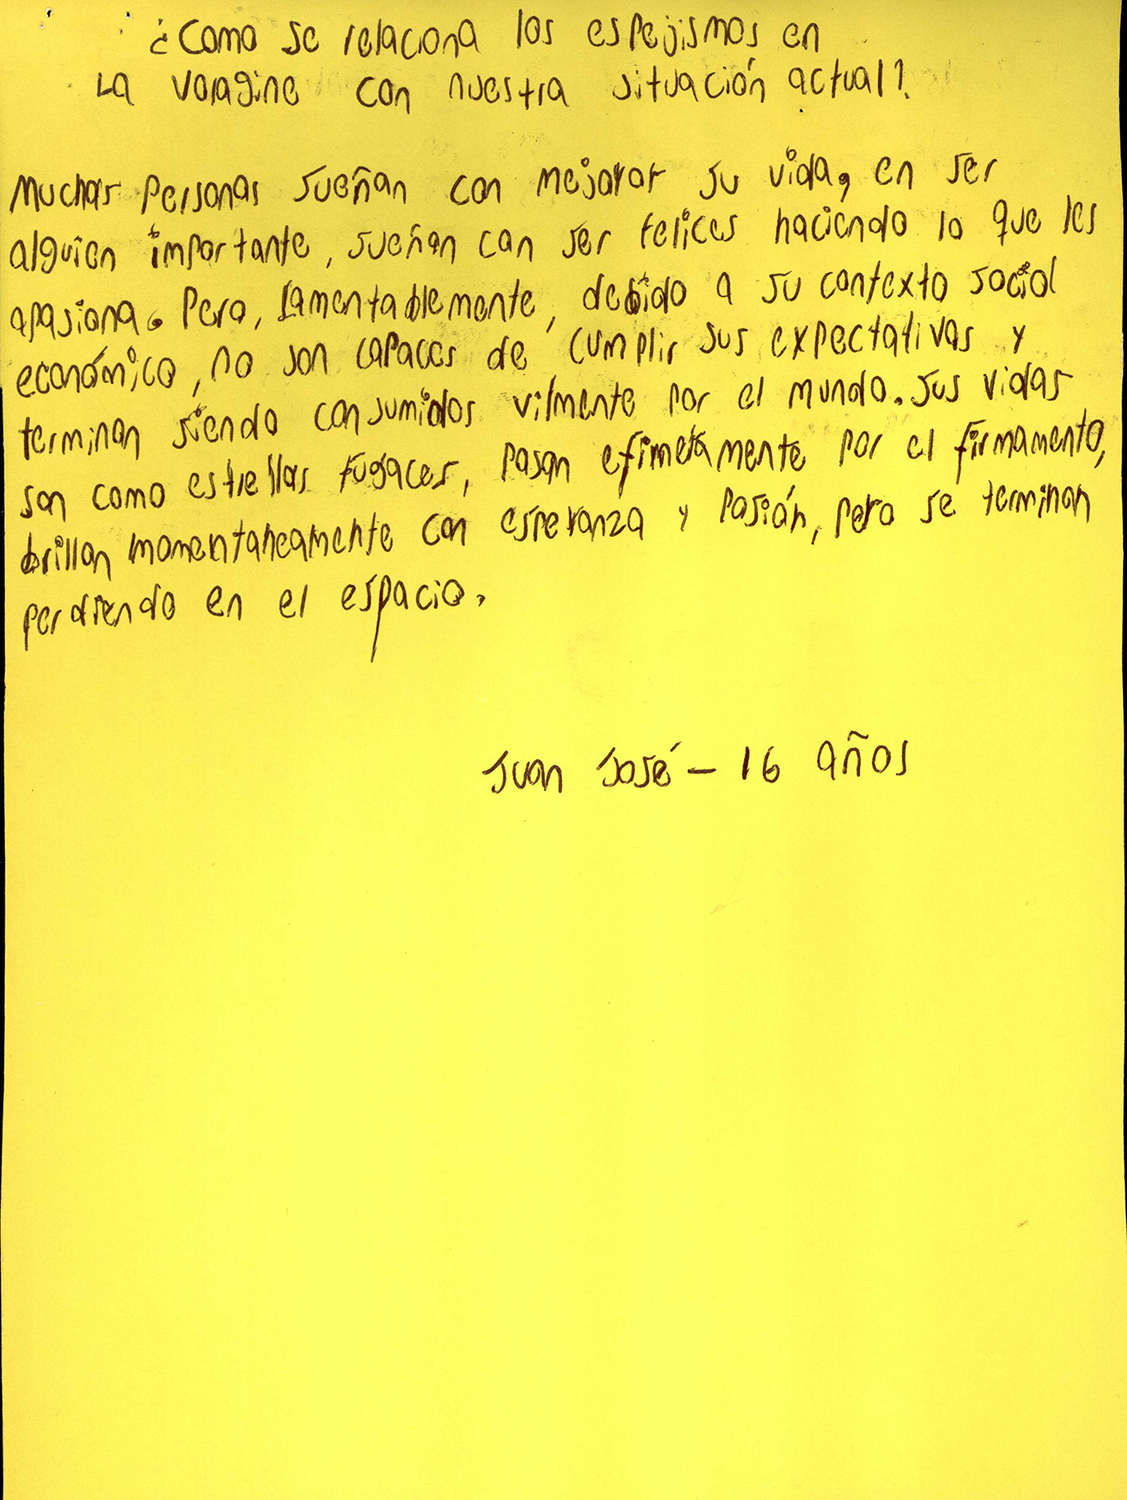 ¿Como se relaciona los espejismos en
La Voragine con nuestra situación actual?
Muchas personas sueñan con mejorar su vida, en ser
alguien importante, sueñan con ser felices haciendo lo que les
apasiona. Pero, lamentablemente, debido a su contexto social
económico, no son capaces de cumplir sus expectativas y
terminan siendo consumidos vilmente por el mundo. Sus vidas
son como estrellas fugaces, pasan efimeramente por el firmamento,
brillan momentaneamente con esperanza y pasión, pero se terminan
perdiendo en el espacio.
Juan José - 16 años